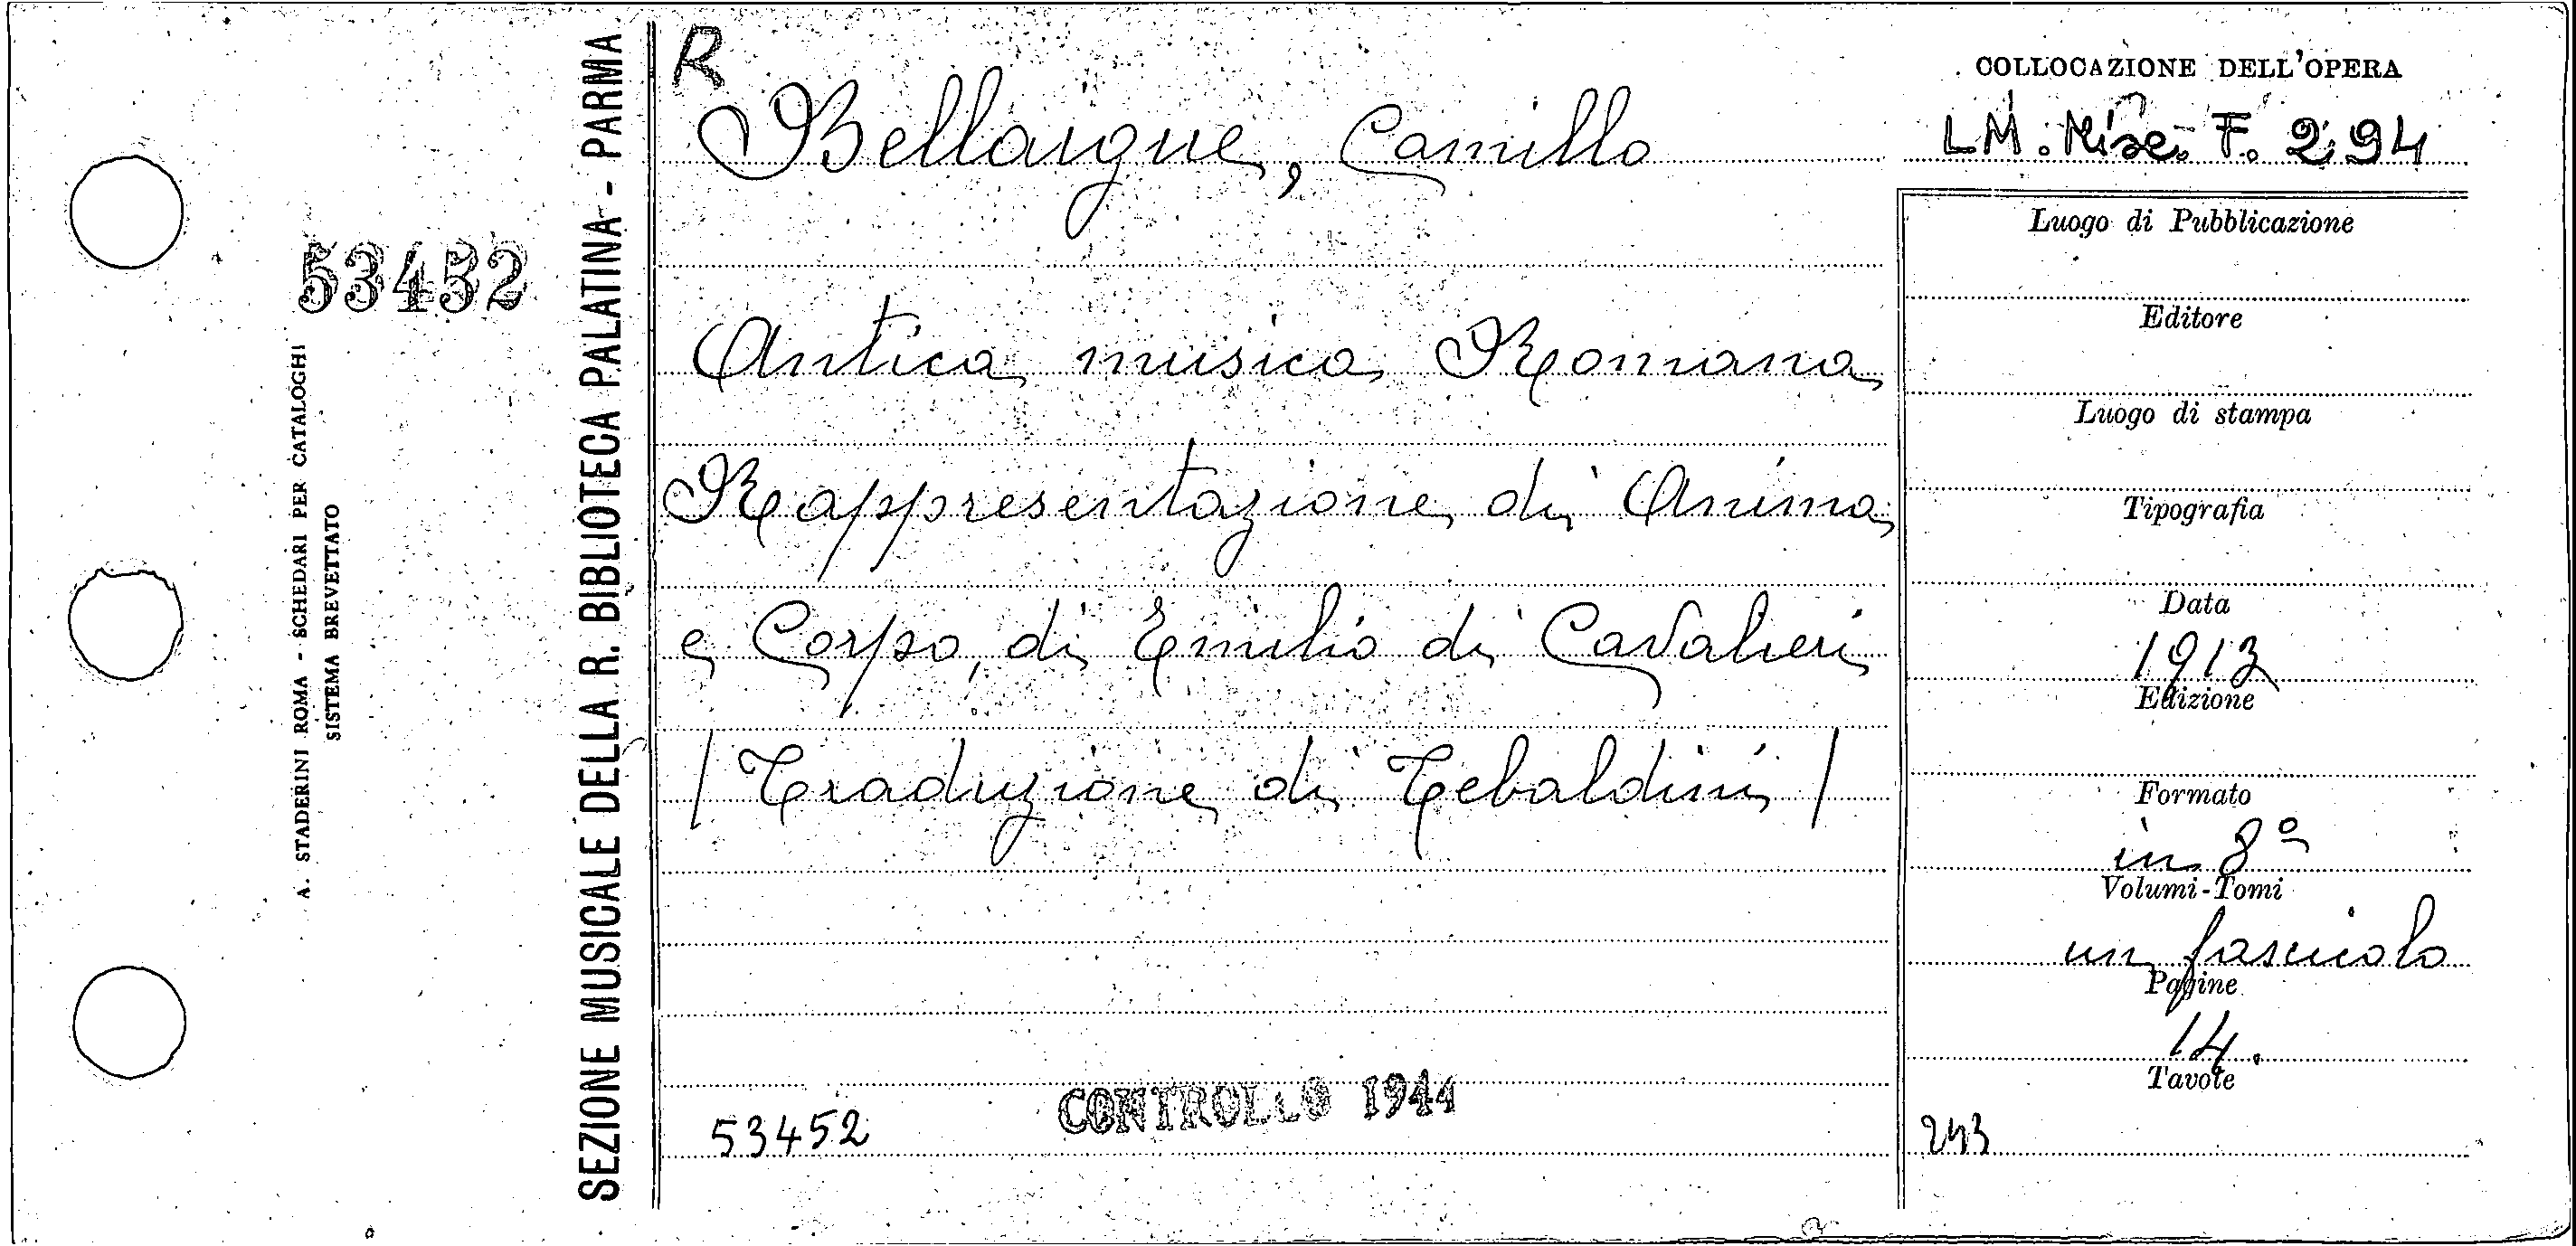 R
Bellaigue, Camillo
Antica musica Romana
Rappresentazione di Anima
e Corpo, di Emilio di Cavalieri
/ Traduzione di Tebaldini /
53452
CONTROLLO 1944
COLLOCAZIONE DELL'OPERA
LM. Misc. F. 294
Luogo di Pubblicazione
Editore
Luogo di stampa
Tipografia
Data
1913
Edizione
Formato
in 8º
Volumi-Tomi
un fascicolo
Pagine
14.
Tavole
243
53452
A. STADERINI ROMA - SCHEDARI PER CATALOGHI
SISTEMA BREVETTATO
SEZIONE MUSICALE DELLA R. BIBLIOTECA PALATINA - PARMA